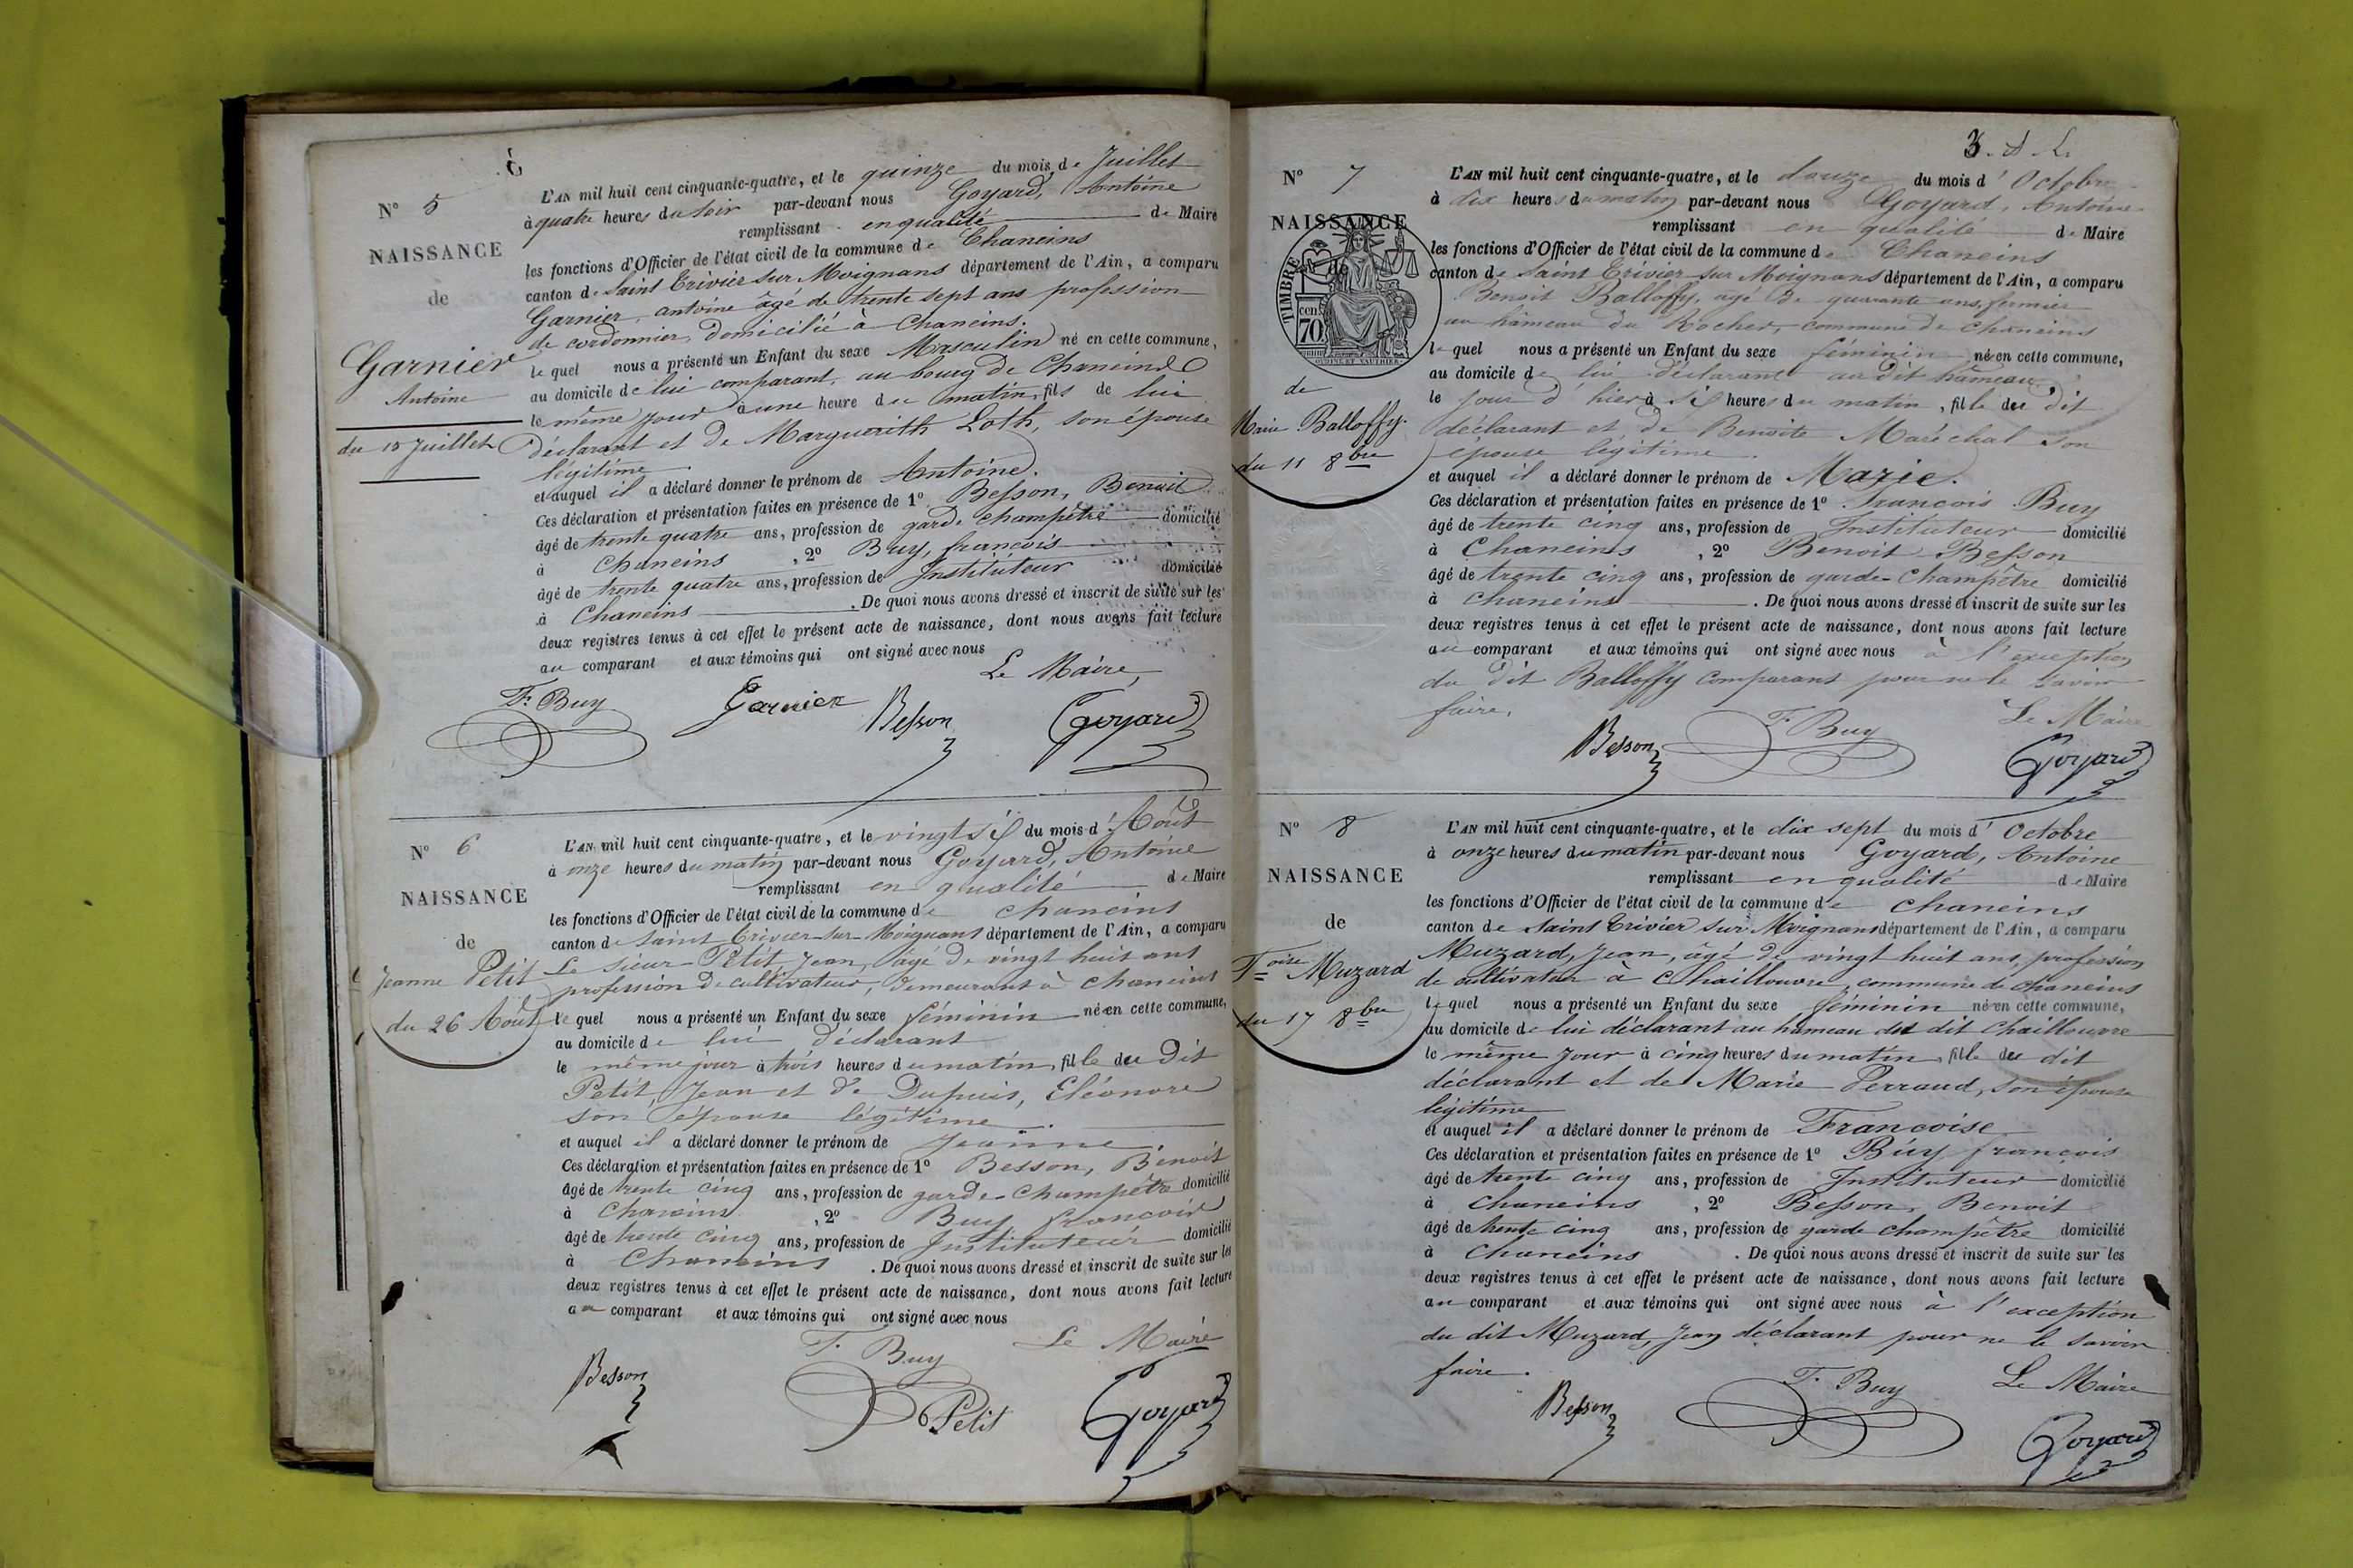 N° 5
NAISSANCE
de
Garnier
Antoine
du 15 Juillet
L'AN mil huit cent cinquante-quatre, et le quinze du mois de Juillet
à quatre heures du soir par-devant nous Goyard, Antoine
remplissant en qualité de Maire
les fonctions d'Officier de l'état civil de la commune de Chaneins
canton de Saint Trivier sur Moignans département de l'Ain, a comparu
Garnier, antoine âgé de trente sept ans profession
de cordonnier, domicilié à Chaneins.
le quel nous a présenté un Enfant du sexe Masculin né en cette commune,
au domicile de lui comparant, au bourg de Chaneins
le même jour à une heure du matin, fils de lui
déclarant et de Marguerith Loth, son épouse
légitime
et auquel il a déclaré donner le prénom de Antoine.
Ces déclaration et présentation faites en présence de 1° Besson, Benoit
âgé de trente quatre ans, profession de garde champêtre domicilié
à Chaneins, 2° Buy, françois
âgé de trente quatre ans, profession de Instituteur domicilié
à Chaneins. De quoi nous avons dressé et inscrit de suite sur les
deux registres tenus à cet effet le présent acte de naissance, dont nous avons fait lecture
au comparant et aux témoins qui ont signé avec nous
Le Maire,
F. Buy Garnier Besson Goyard
N° 6
NAISSANCE
de
Jeanne Petit
du 26 Août
L'AN mil huit cent cinquante-quatre, et le vingt six du mois d'Août
à onze heures du matin par-devant nous Goyard, Antoine
remplissant en qualité de Maire
les fonctions d'Officier de l'état civil de la commune de chaneins
canton de Saint Trivier sur Moignans département de l'Ain, a comparu
Le sieur Petit, Jean, âgé de vingt huit ans
profession de cultivateur, demeurant à chaneins
le quel nous a présenté un Enfant du sexe féminin né en cette commune,
au domicile de lui déclarant
le même jour à trois heures du matin, fille du dit
Petit, Jean et de Dupuis, Eléonore
son épouse légitime.
et auquel il a déclaré donner le prénom de Jeanne.
Ces déclaration et présentation faites en présence de 1° Besson, Benoit
âgé de trente cinq ans, profession de garde-champêtre domicilié
à Chaneins, 2° Buy, françois
âgé de trente cinq ans, profession de Instituteur domicilié
à Chaneins. De quoi nous avons dressé et inscrit de suite sur les
deux registres tenus à cet effet le présent acte de naissance, dont nous avons fait lecture
au comparant et aux témoins qui ont signé avec nous
F. Buy Le Maire
Besson Petit Goyard
3
N° 7
NAISSANCE
TIMBRE
de
cen. 70
de
Marie Balloffy
du 11 8bre
L'AN mil huit cent cinquante-quatre, et le douze du mois d'Octobre
à dix heures du matin par-devant nous Goyard, Antoine
remplissant en qualité de Maire
les fonctions d'Officier de l'état civil de la commune de Chaneins
canton de Saint Trivier sur Moignans département de l'Ain, a comparu
Benoit Balloffy, âgé de quarante ans, fermier
au hâmeau du Rocher, commune de chaneins
le quel nous a présenté un Enfant du sexe féminin né en cette commune,
au domicile de lui déclarant au dit hâmeau,
le jour d'hier à six heures du matin, fille du dit
déclarant et de Benoite Maréchal son
épouse légitime.
et auquel il a déclaré donner le prénom de Marie.
Ces déclaration et présentation faites en présence de 1° François Buy
âgé de trente cinq ans, profession de Instituteur domicilié
à Chaneins, 2° Benoit Besson
âgé de trente cinq ans, profession de garde-champêtre domicilié
à chaneins. De quoi nous avons dressé et inscrit de suite sur les
deux registres tenus à cet effet le présent acte de naissance, dont nous avons fait lecture
au comparant et aux témoins qui ont signé avec nous à l'exception
du dit Balloffy comparant pour ne le savoir
faire.
Besson F. Buy Le Maire
Goyard
N° 8
NAISSANCE
de
Foise Muzard
du 17 8bre
L'AN mil huit cent cinquante-quatre, et le dix sept du mois d'Octobre
à onze heures du matin par-devant nous Goyard, Antoine
remplissant en qualité de Maire
les fonctions d'Officier de l'état civil de la commune de chaneins
canton de Saint Trivier sur Moignans département de l'Ain, a comparu
Muzard, Jean, âgé de vingt huit ans, profession
de cultivateur à Chaillouvre, commune de chaneins
le quel nous a présenté un Enfant du sexe féminin né en cette commune,
au domicile de lui déclarant au hâmeau du dit Chaillouvre
le même jour à cinq heures du matin, fille du dit
déclarant et de Marie Perraud, son épouse
légitime
et auquel il a déclaré donner le prénom de Francoise
Ces déclaration et présentation faites en présence de 1° Buy françois
âgé de trente cinq ans, profession de Instituteur domicilié
à Chaneins, 2° Besson, Benoit
âgé de trente cinq ans, profession de garde champêtre domicilié
à Chaneins. De quoi nous avons dressé et inscrit de suite sur les
deux registres tenus à cet effet le présent acte de naissance, dont nous avons fait lecture
au comparant et aux témoins qui ont signé avec nous à l'exception
du dit Muzard, Jean déclarant pour ne le savoir
faire.
Besson F. Buy Le Maire
Goyard